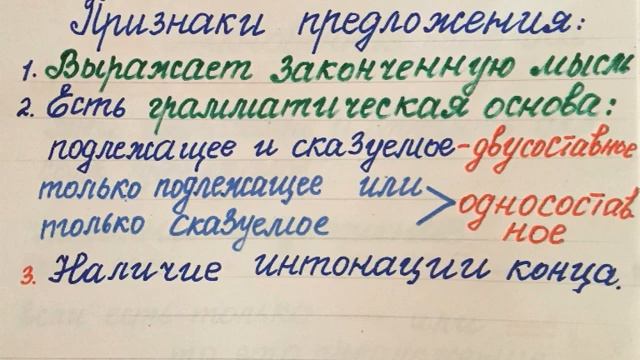 Признаки предложения:
1. Выражает законченную мысль
2. Есть грамматическая основа:
подлежащее и сказуемое - двусоставное
только подлежащее или
только сказуемое
> односостав
ное
3. Наличие интонации конца.